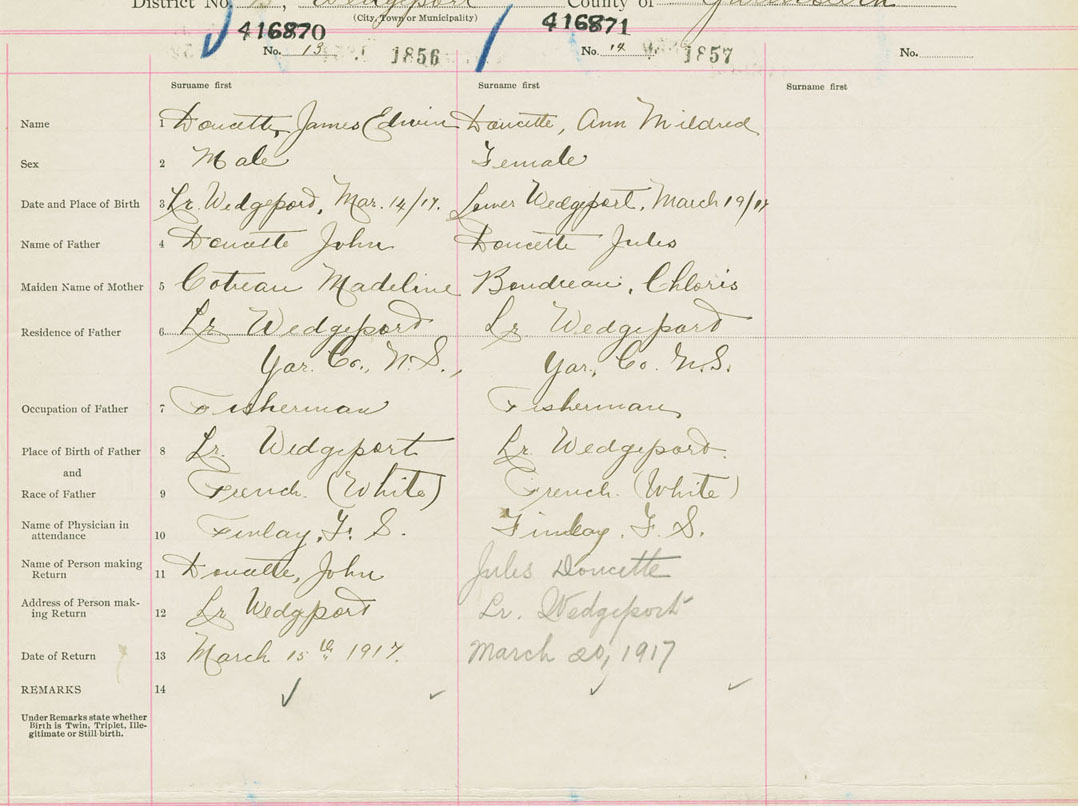 District No. 13, Wedgeport County of Yarmouth
(City, Town or Municipality)
416870 416871
No. 13 1856 No. 14 1857 No.
Surname first Surname first Surname first
Name 1 Doucette, James Edwin Doucette, Ann Mildred
Sex 2 Male Female
Date and Place of Birth 3 Lr. Wedgeport, Mar. 14/17. Lower Wedgeport, March 19/17
Name of Father 4 Doucette John Doucette Jules
Maiden Name of Mother 5 Cotreau Madeline Boudreau, Chloris
Residence of Father 6 Lr Wedgeport Lr Wedgeport
Yar. Co., N.S., Yar. Co. N.S.
Occupation of Father 7 Fisherman Fisherman
Place of Birth of Father 8 Lr. Wedgeport Lr. Wedgeport.
and
Race of Father 9 French. (White) French. (White)
Name of Physician in
attendance 10 Finlay, F. S. Finlay, F. S.
Name of Person making
Return 11 Doucette, John Jules Doucette
Address of Person mak-
ing Return 12 Lr Wedgeport Lr. Wedgeport
Date of Return 13 March 15th, 1917. March 20, 1917
REMARKS 14
Under Remarks state whether
Birth is Twin, Triplet, Ille-
gitimate or Still-birth.